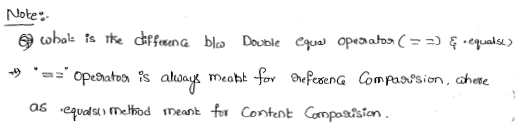 Note:-
Q) what is the difference b/w Double equal operator (= =) & .equals()
→ "==" operator is always meant for reference Comparision, where
as .equals() method meant for Content Comparision.